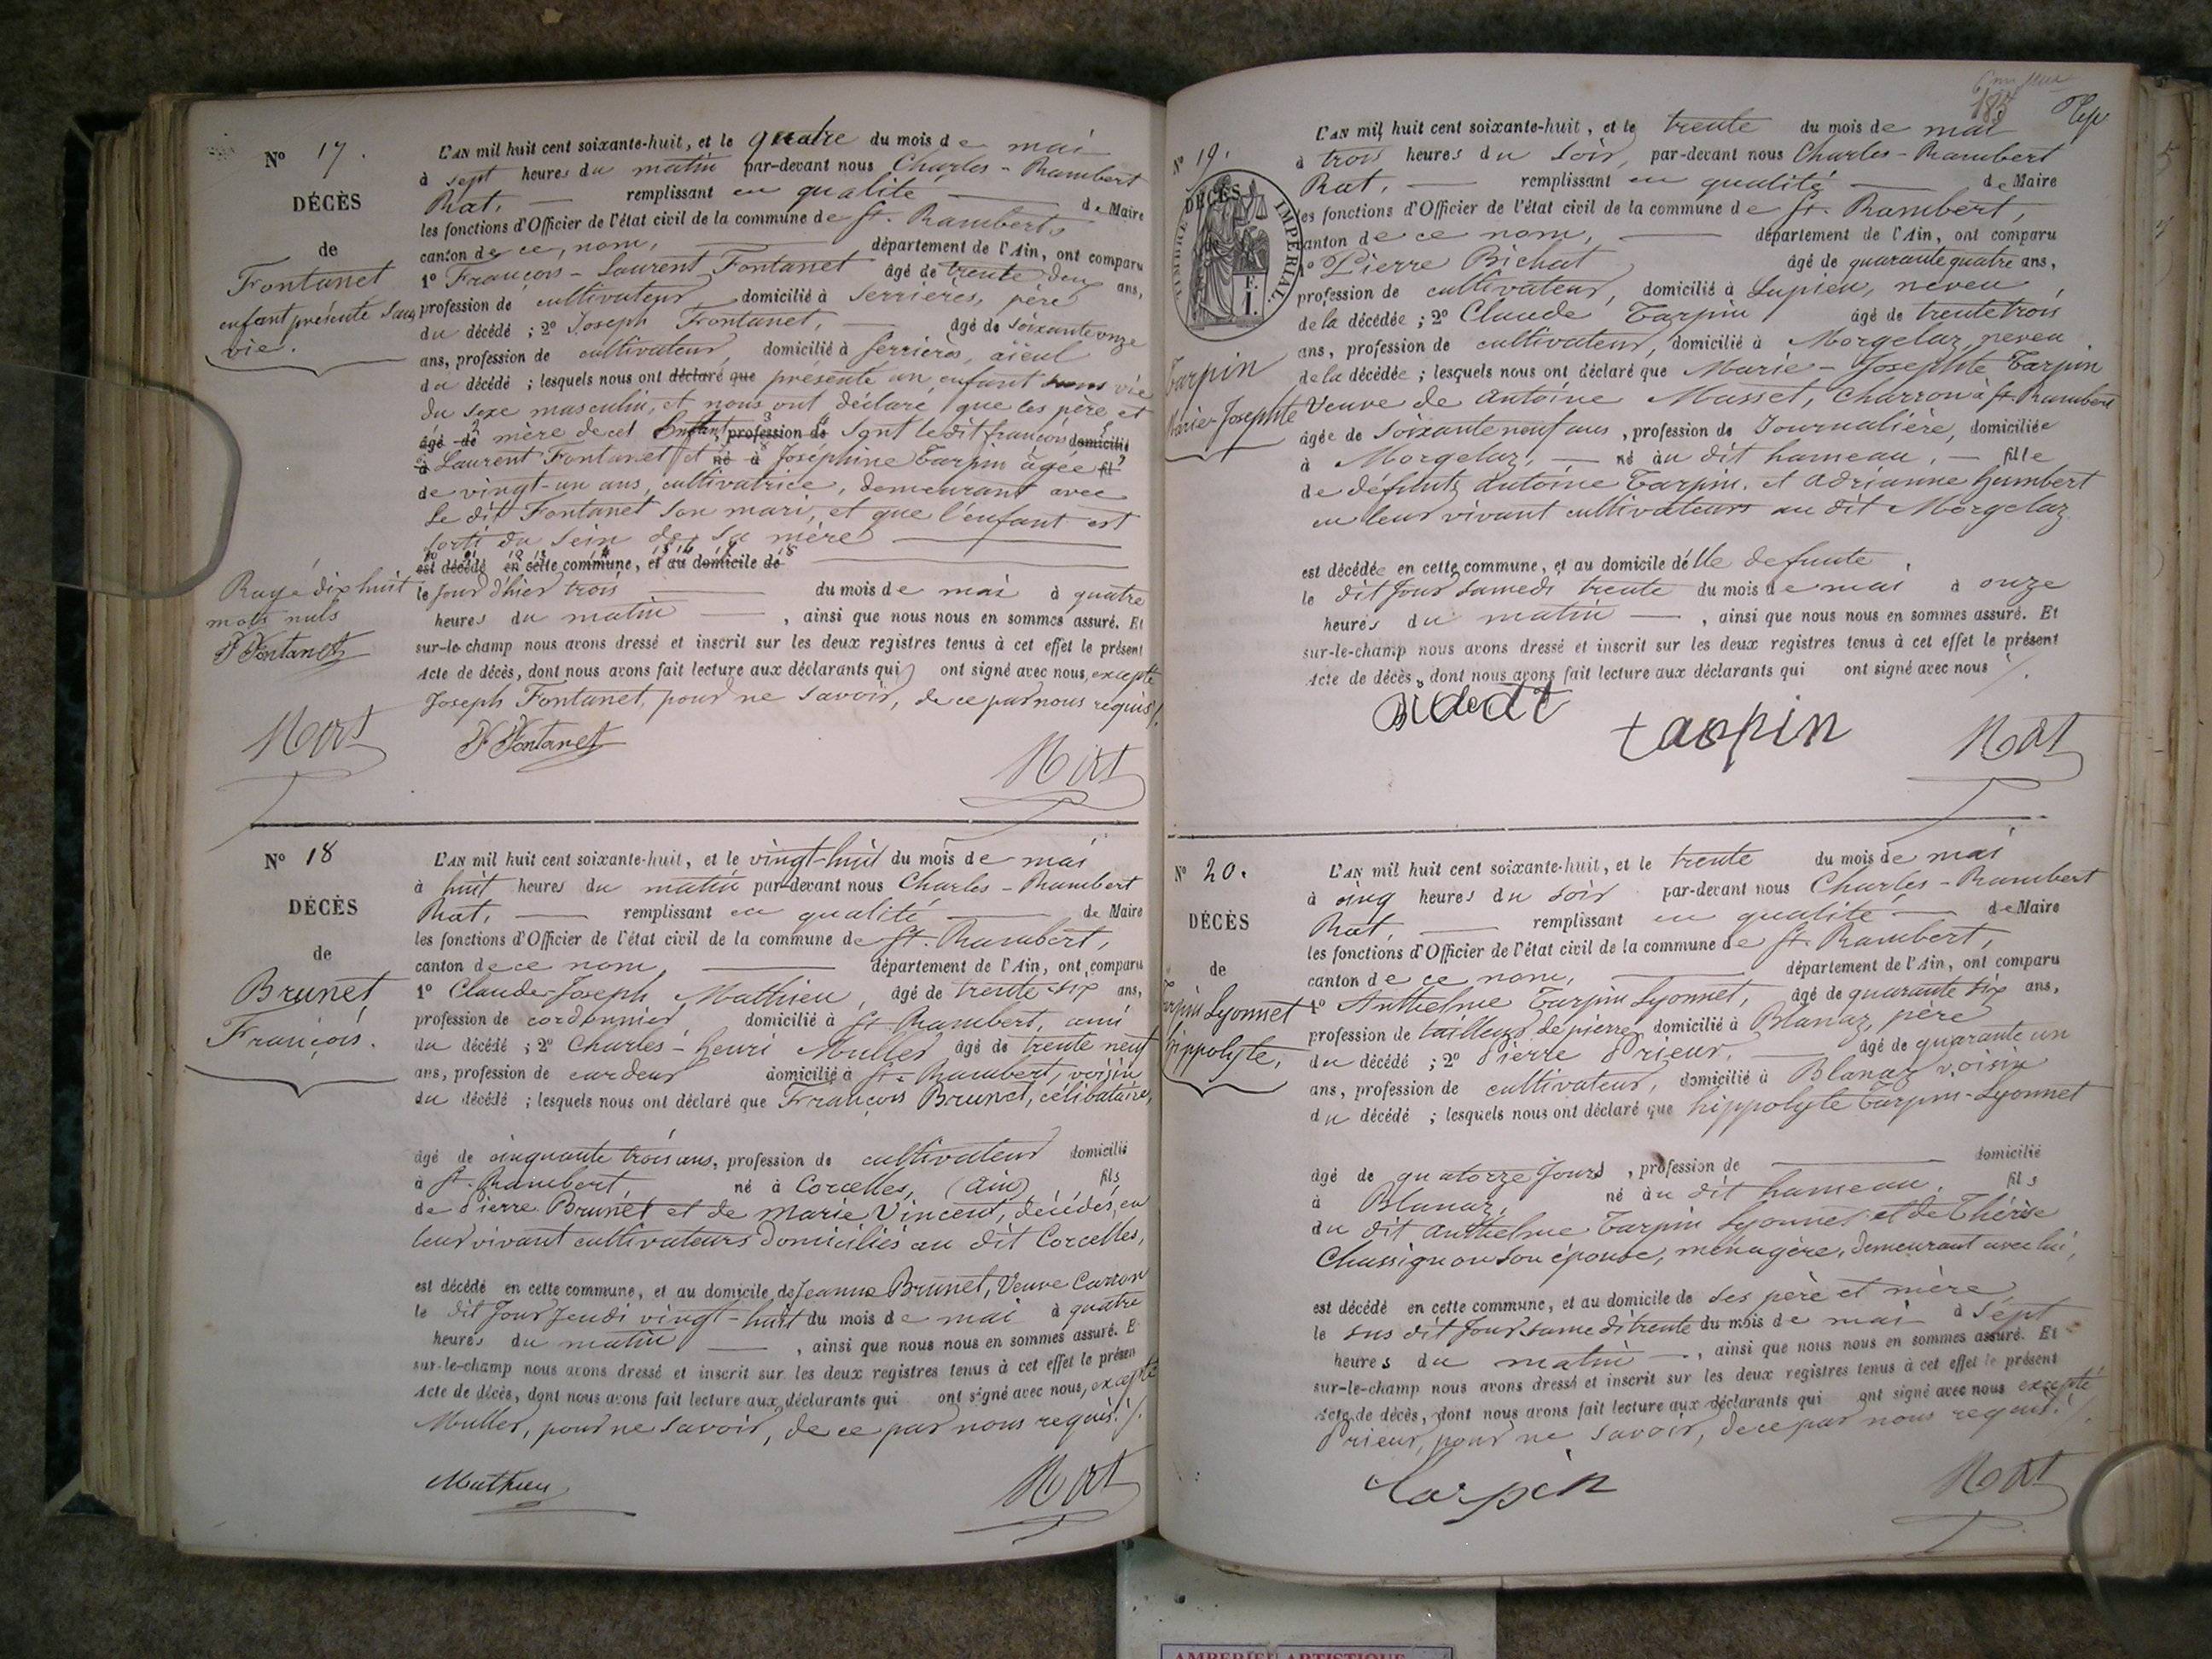 N° 17.
DÉCÈS
de
Fontanet
enfant présenté sans
vie.
L'AN mil huit cent soixante-huit, et le quatre du mois de mai
à sept heures du matin par-devant nous Charles-Rambert
Rat, remplissant en qualité de Maire
les fonctions d'Officier de l'état civil de la commune de St. Rambert,
canton de ce nom, département de l'Ain, ont comparu
1° François-Laurent Fontanet âgé de trente deux ans,
profession de cultivateur, domicilié à Serrières, père
du décédé ; 2° Joseph Fontanet, âgé de soixante onze
ans, profession de cultivateur, domicilié à Serrières, aïeul
du décédé ; lesquels nous ont déclaré que présenté un enfant sans vie
du sexe masculin, et nous ont déclaré que les père et
âgé de mère de cet Enfant profession de sont le dit françois domicilié
à Laurent Fontanet et né à Joséphine Tarpin âgée fil
de vingt-un ans, cultivatrice, demeurant avec
le dit Fontanet son mari, et que l'enfant est
sorti du sein de sa mère
est décédé en cette commune, et au domicile de
le jour d'hier trois du mois de mai à quatre
heures du matin, ainsi que nous nous en sommes assuré. Et
sur-le-champ nous avons dressé et inscrit sur les deux registres tenus à cet effet le présent
Acte de décès, dont nous avons fait lecture aux déclarants qui ont signé avec nous, excepté
Joseph Fontanet, pour ne savoir, de ce par nous requis ./.
Rayé dix huit
mots nuls
F Fontanet
Rat
F Fontanet
Rat
N° 18
DÉCÈS
de
Brunet
François.
L'AN mil huit cent soixante-huit, et le vingt-huit du mois de mai
à huit heures du matin par-devant nous Charles-Rambert
Rat, remplissant en qualité de Maire
les fonctions d'Officier de l'état civil de la commune de St. Rambert,
canton de ce nom, département de l'Ain, ont comparu
1° Claude-Joseph Mathieu, âgé de trente-six ans,
profession de cordonnier domicilié à St Rambert, ami
du décédé ; 2° Charles-henri Muller âgé de trente neuf
ans, profession de cardeur domicilié à St. Rambert, voisin
du décédé ; lesquels nous ont déclaré que François Brunet, célibataire,
âgé de cinquante trois ans, profession de cultivateur domicilié
à St. Rambert, né à Corcelles, (Ain) fils
de Pierre Brunet et de Marie Vincent, décédés, en
leur vivant cultivateurs domiciliés au dit Corcelles,
est décédé en cette commune, et au domicile de Jeanne Brunet, Veuve Carron
le dit Jour Jeudi vingt-huit du mois de mai à quatre
heures du matin, ainsi que nous nous en sommes assuré. E
sur-le-champ nous avons dressé et inscrit sur les deux registres tenus à cet effet le présen
Acte de décès, dont nous avons fait lecture aux déclarants qui ont signé avec nous, excepté
Muller, pour ne savoir, de ce par nous requis. /.
Mathieu
Rat
185
N° 19.
DÉCÈS
TIMBRE IMPÉRIAL
1 F.
Tarpin
Marie-Josephte
L'AN mil huit cent soixante-huit, et le trente du mois de mai
à trois heures du soir, par-devant nous Charles-Rambert
Rat, remplissant en qualité de Maire
les fonctions d'Officier de l'état civil de la commune de St. Rambert,
canton de ce nom, département de l'Ain, ont comparu
1° Pierre Bichat âgé de quarante quatre ans,
profession de cultivateur, domicilié à Lupieu, neveu
de la décédée ; 2° Claude Tarpin âgé de trente trois
ans, profession de cultivateur, domicilié à Morgelaz, neveu
de la décédée ; lesquels nous ont déclaré que Marie-Josephte Tarpin
Veuve de Antoine Masset, Charron à St Rambert
âgée de soixante neuf ans, profession de Journalière, domiciliée
à Morgelaz, né au dit hameau, fille
de défunts Antoine Tarpin, et Adrianne humbert
en leur vivant cultivateurs au dit Morgelaz
est décédée en cette commune, et au domicile de lle defunte,
le dit Jour samedi trente du mois de mai à onze
heures du matin, ainsi que nous nous en sommes assuré. Et
sur-le-champ nous avons dressé et inscrit sur les deux registres tenus à cet effet le présent
Acte de décès, dont nous avons fait lecture aux déclarants qui ont signé avec nous /.
tarpin
Rat
N° 20.
DÉCÈS
de
Tarpin Lyonnet
hippolyte,
L'AN mil huit cent soixante-huit, et le trente du mois de mai
à cinq heures du soir par-devant nous Charles-Rambert
Rat, remplissant en qualité de Maire
les fonctions d'Officier de l'état civil de la commune de St. Rambert,
canton de ce nom, département de l'Ain, ont comparu
1° Anthelme Tarpin Lyonnet, âgé de quarante six ans,
profession de tailleur de pierre domicilié à Blanaz, père
du décédé ; 2° Pierre Prieur, âgé de quarante un
ans, profession de cultivateur, domicilié à Blanaz voisin
du décédé ; lesquels nous ont déclaré que hippolyte Tarpin-Lyonnet
âgé de quatorze Jours, profession de domicilié
à Blanaz, né au dit hameau, fils
du dit Anthelme Tarpin Lyonnet et de Thérèse
Chassignon son épouse, ménagère, demeurant avec lui,
est décédé en cette commune, et au domicile de ses père et mère
le sus dit Jour samedi trente du mois de mai à sept
heures du matin, ainsi que nous nous en sommes assuré. Et
sur-le-champ nous avons dressé et inscrit sur les deux registres tenus à cet effet le présent
Acte de décès, dont nous avons fait lecture aux déclarants qui ont signé avec nous excepté
Prieur, pour ne savoir, de ce par nous requis. /.
Tarpin
Rat
AMBERIEU ARTISTIQUE